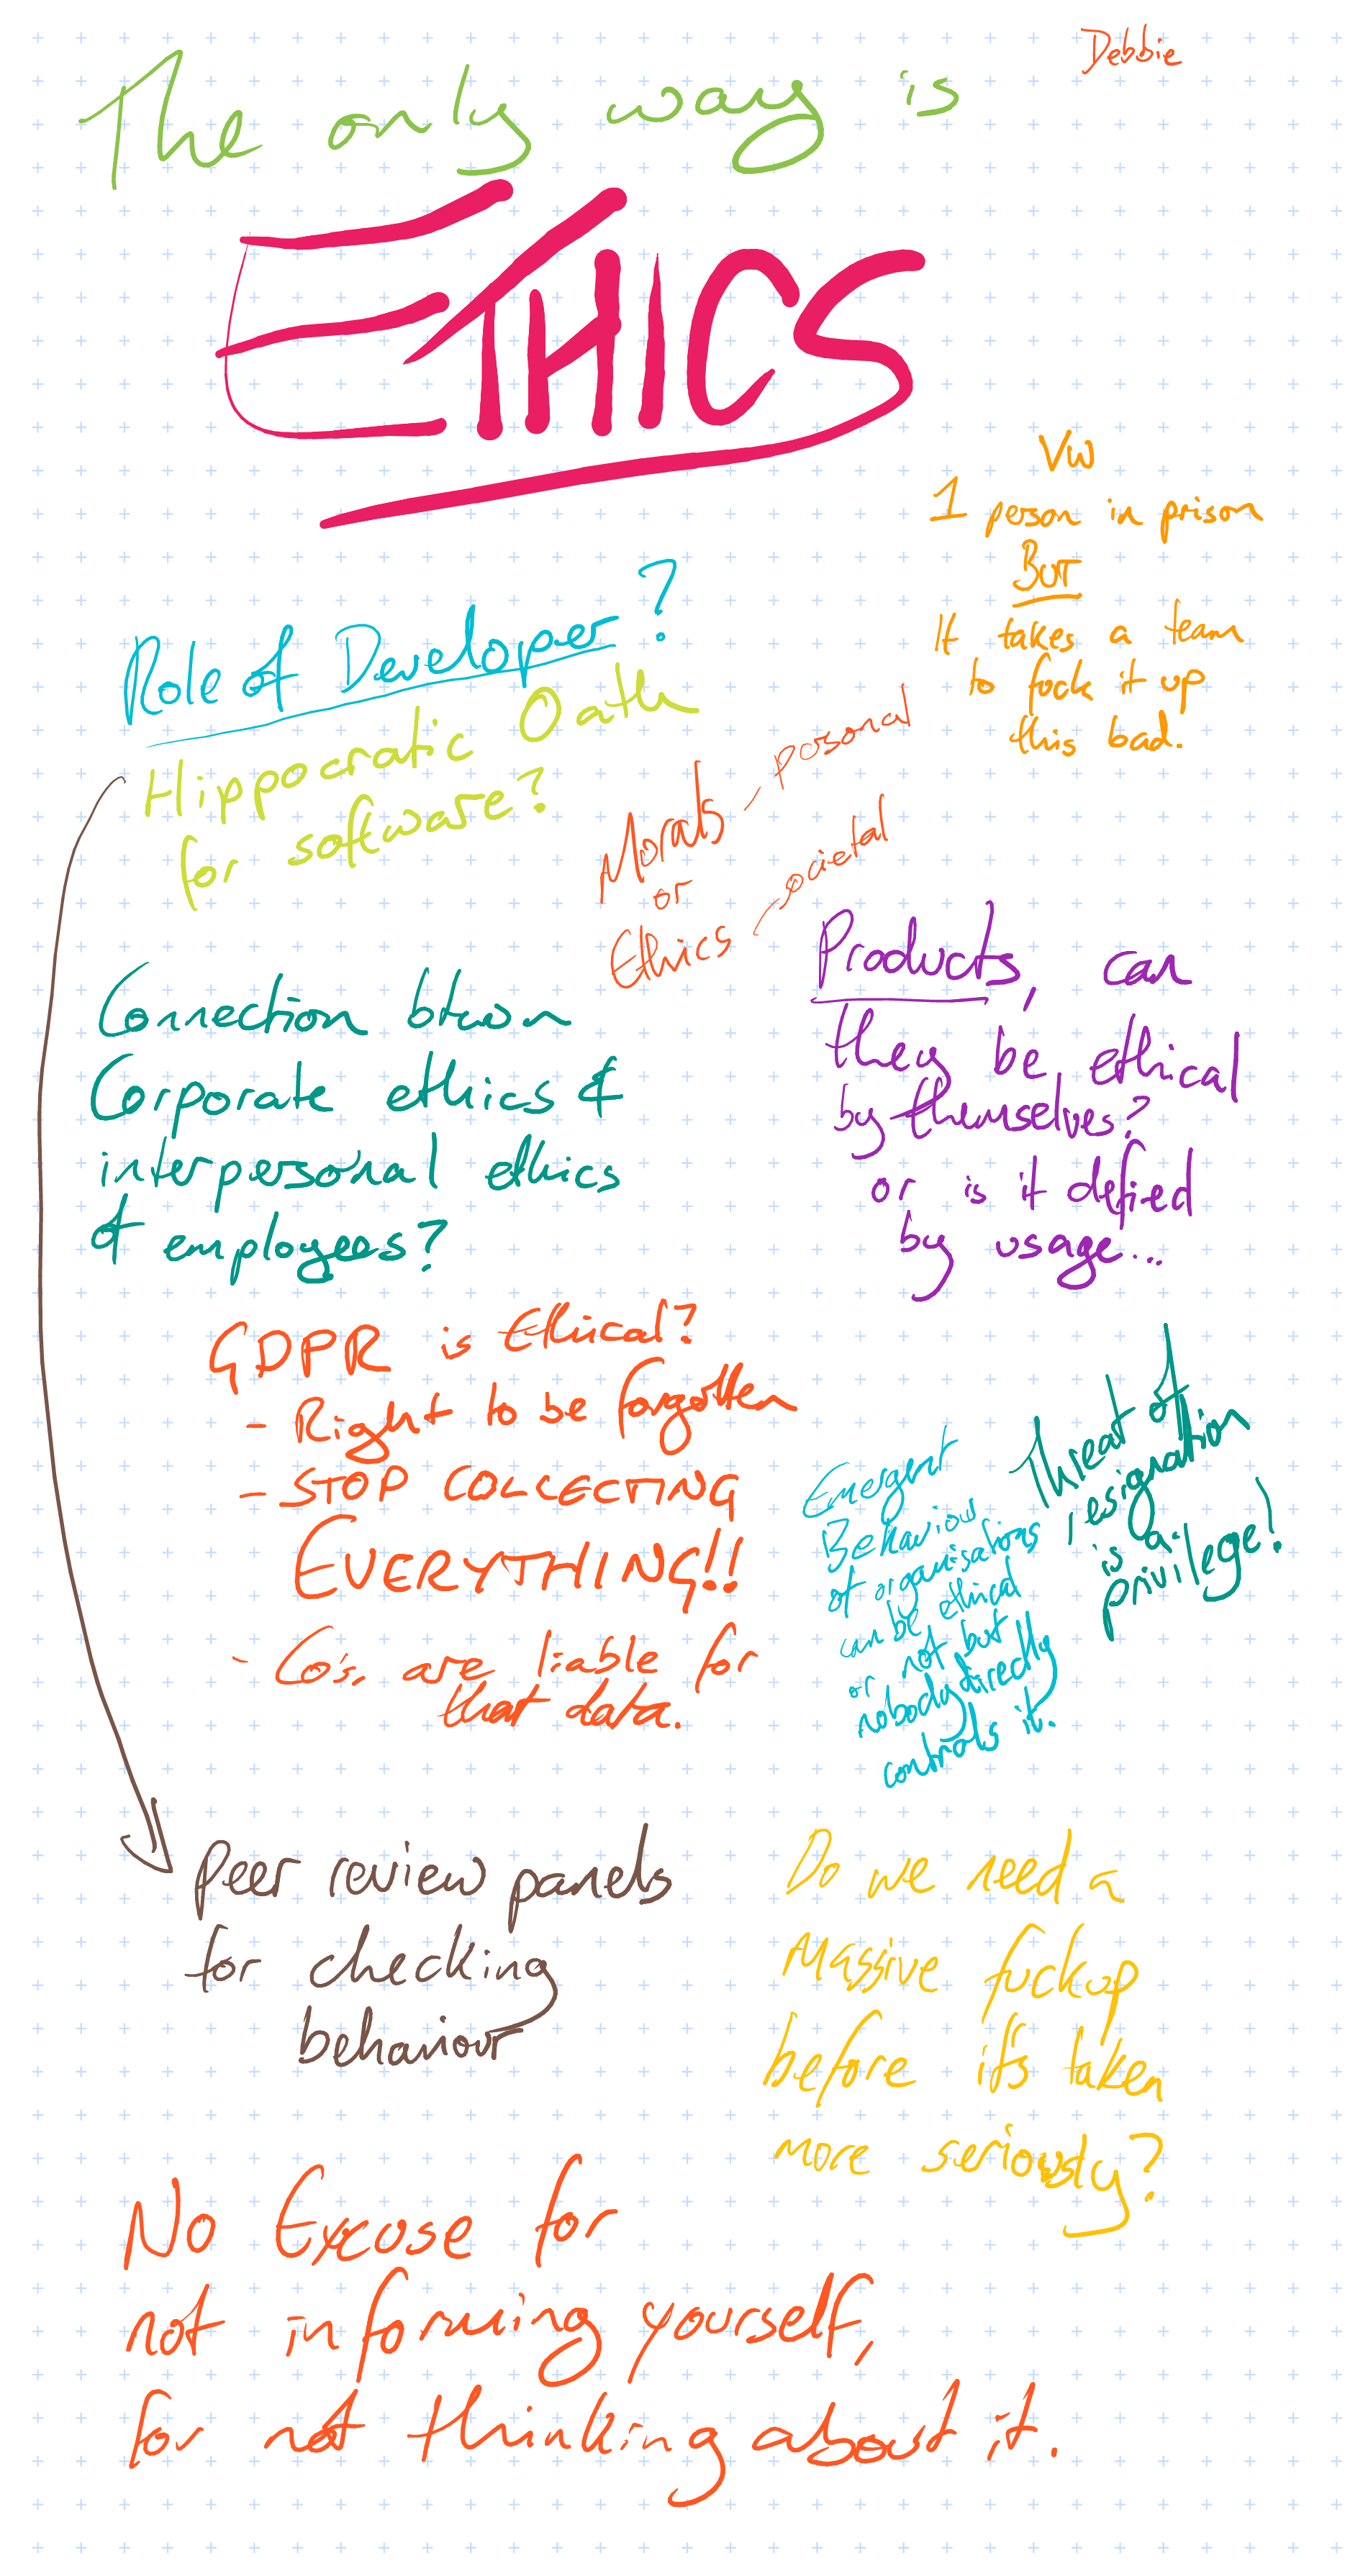 Debbie
The only way is
ETHICS
VW
1 person in prison
BUT
It takes a team
to fuck it up
this bad.
Role of Developer?
Hippocratic Oath
for software?
Morals - personal
or
Ethics - societal
Connection btwen
Corporate ethics &
interpersonal ethics
of employees?
Products, can
they be ethical
by themselves?
or is it defied
by usage...
GDPR is Ethical?
- Right to be forgotten
- STOP COLLECTING
EVERYTHING!!
- Co's. are liable for
that data.
Emergent
Behaviour
of organisations
can be ethical
or not but
nobody directly
controls it.
Threat of
resignation
is a
privilege!
Peer review panels
for checking
behaviour
Do we need a
Massive fuckup
before it's taken
more seriously?
No Excuse for
not informing yourself,
for not thinking about it.